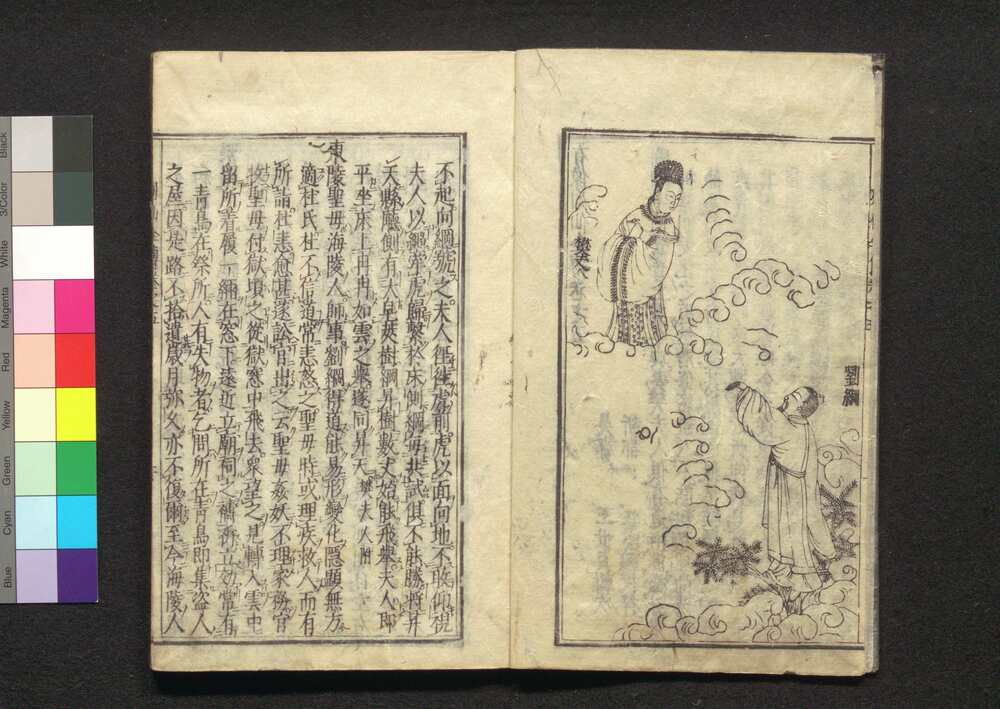 劉綱
樊夫人
不起向綱號之夫人徑往虎前虎以面向地不敢仰視
夫人以繩牽虎歸繫於床側綱每共試俱不能勝將昇
天縣廳側有大皂莢樹綱昇樹數丈始能飛舉夫人即
平坐床上冉冉如雲之舉遂同昇天 樊夫人附
東陵聖母海陵人師事劉綱得道能易形變化隱顯無方
適杜氏杜不信道常恚怒之聖母時或理疾救人而有
所詣杜恚愈甚遂訟官出之云聖母姦妖不理家務官
收聖母付獄頃之從獄窓中飛去衆望之見轉入雲中
留所着履一緉在窓下遠近立廟祠之禱祈立効常有
一青鳥在祭所人有失物者乞問所在青鳥即集盜人
之屋因是路不拾遺歲月弥久亦不復爾至今海陵人
Blue
Cyan
Green
Yellow
Red
Magenta
White
3/Color
Black